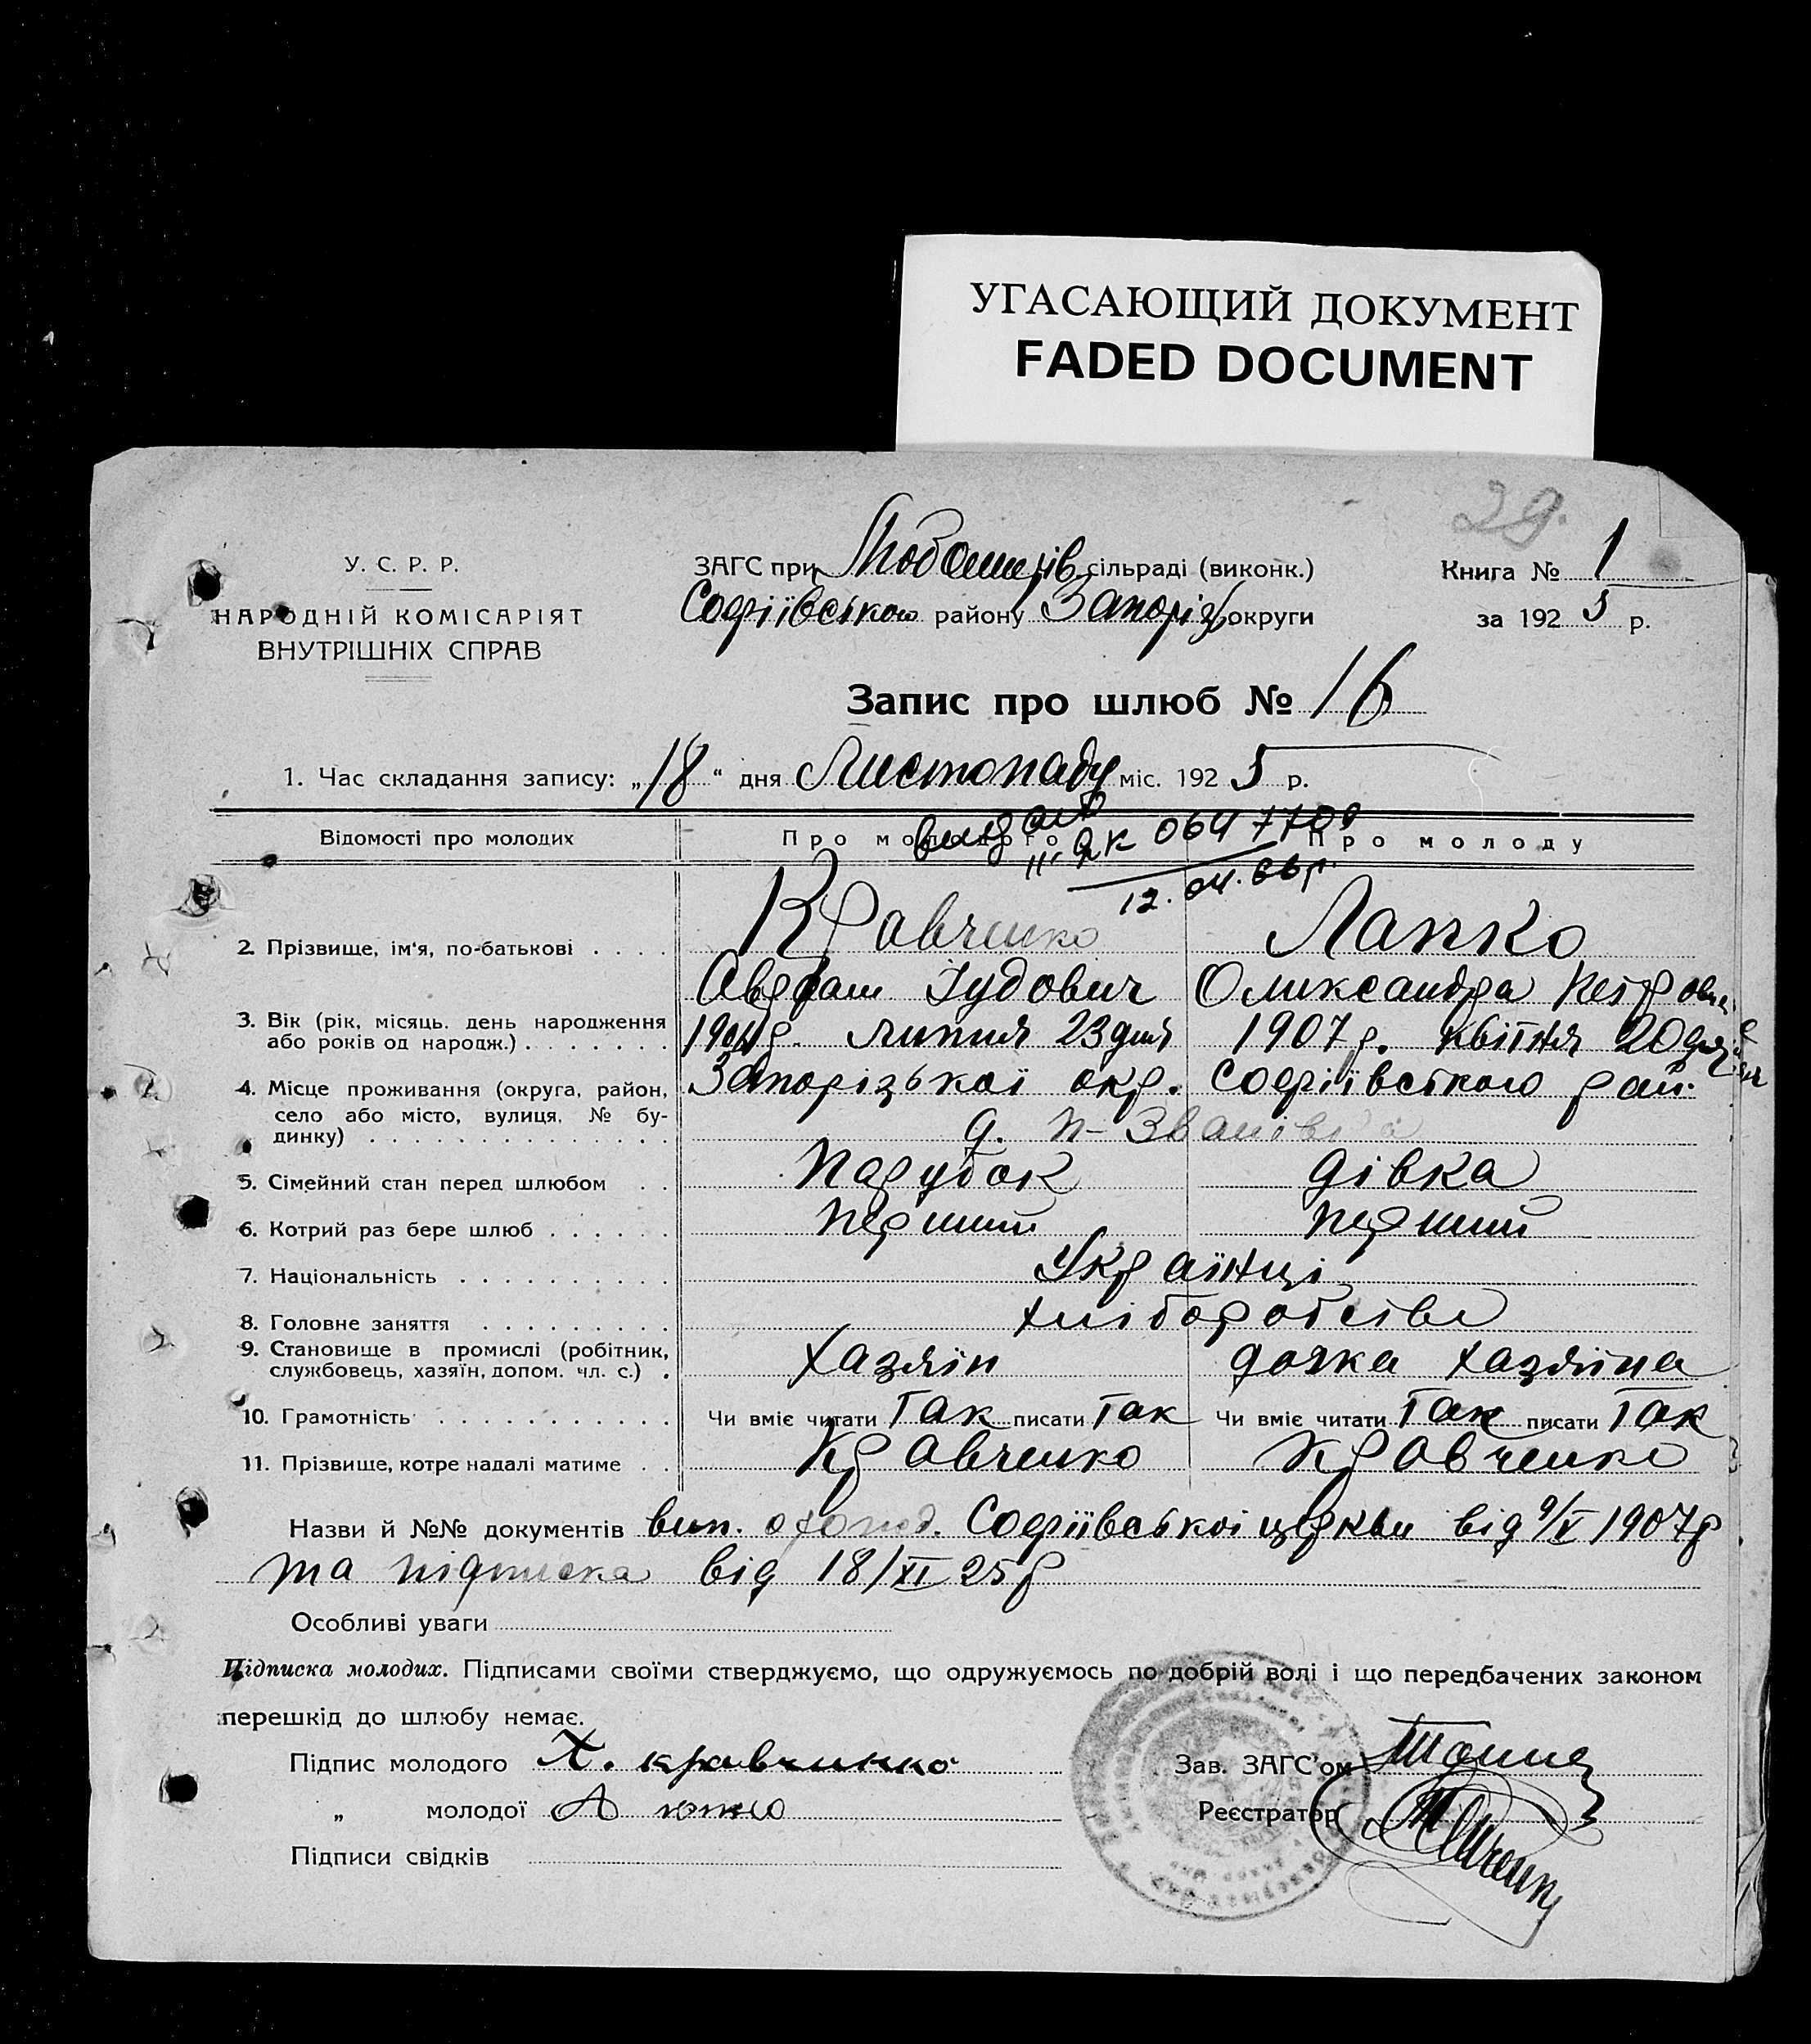 УГАСАЮЩИЙ ДОКУМЕНТ
FADED DOCUMENT
29.
У. С. Р. Р.
НАРОДНІЙ КОМІСАРІЯТ
ВНУТРІШНІХ СПРАВ
ЗАГС при сільраді (виконк.)
Софіївського району Запоріз округи
Книга № 1
за 1925 р.
Запис про шлюб № 16
1. Час складання запису: „18" дня Листопаду міс. 1925 р.
Відомості про молодих
Про молодого
Про молоду
064 7709
12. 04. 66 р.
2. Прізвище, ім'я, по-батькові . . . . Кравченко Лапко
Іудович Олександра Петровна
3. Вік (рік, місяць, день народження або років од народж.) . . . . . . . липня 23 дня 1907 р. квітня 20 дня
4. Місце проживання (округа, район, село або місто, вулиця, № будинку) . . . . . . . . . . . . . . Запорізької окр. Софіївського рай.
5. Сімейний стан перед шлюбом . . Парубок дівка
6. Котрий раз бере шлюб . . . . . . перший перший
7. Національність . . . . . . . . . . Українці
8. Головне заняття . . . . . . . . . хліборобство
9. Становище в промислі (робітник, службовець, хазяїн, допом. чл. с.) . хазяїн дочка хазяїна
10. Грамотність . . . . . . . . . . . Чи вміє читати так писати так Чи вміє читати так писати так
11. Прізвище, котре надалі матиме . . Кравченко Кравченко
Назви й №№ документів вип. Софіївської церкви від 9/V 1907 р
та підписка від 18/XI 25 р
Особливі уваги
Підписка молодих. Підписами своїми стверджуємо, що одружуємось по добрій волі і що передбачених законом
перешкід до шлюбу немає.
Підпис молодого Х. кравчинко
„ молодої А
Підписи свідків
Зав. ЗАГС'ом
Реєстратор